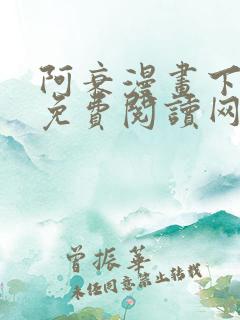 阿衰漫畫下
免費閱讀网
曾振華
未经同意禁止转载